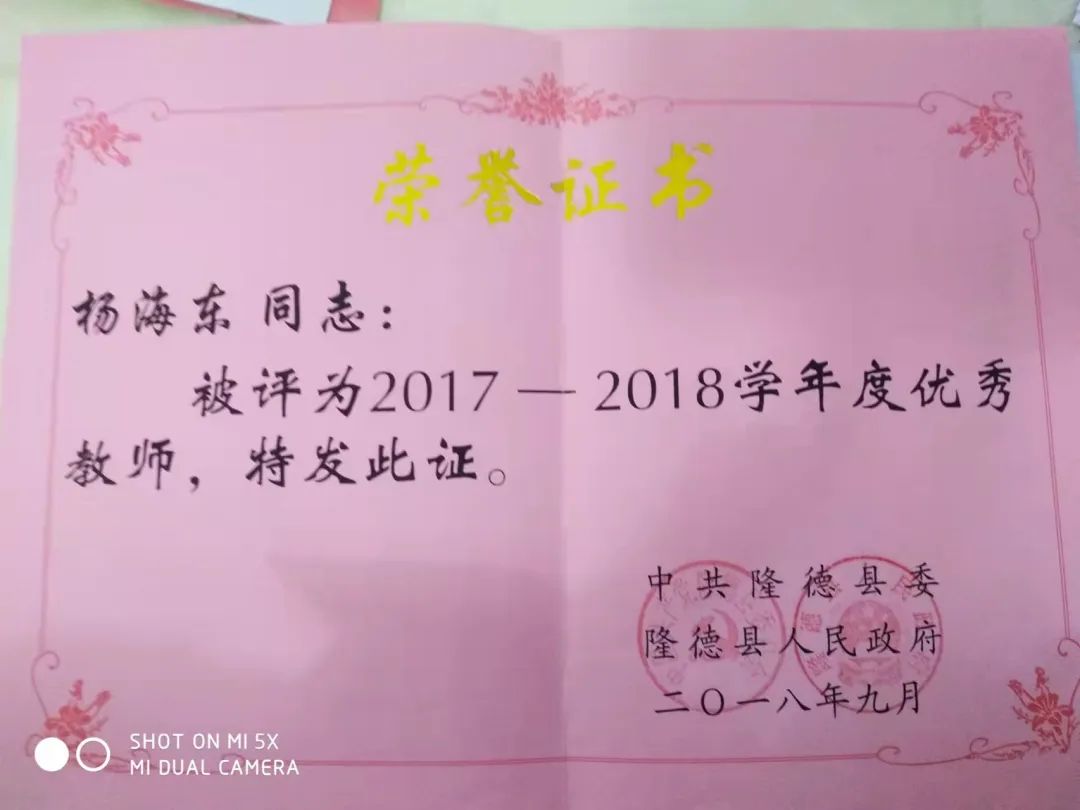 荣誉证书
杨海东 同志：
被评为2017—2018学年度优秀
教师，特发此证。
中共隆德县委
隆德县人民政府
二〇一八年九月
SHOT ON MI 5X
MI DUAL CAMERA